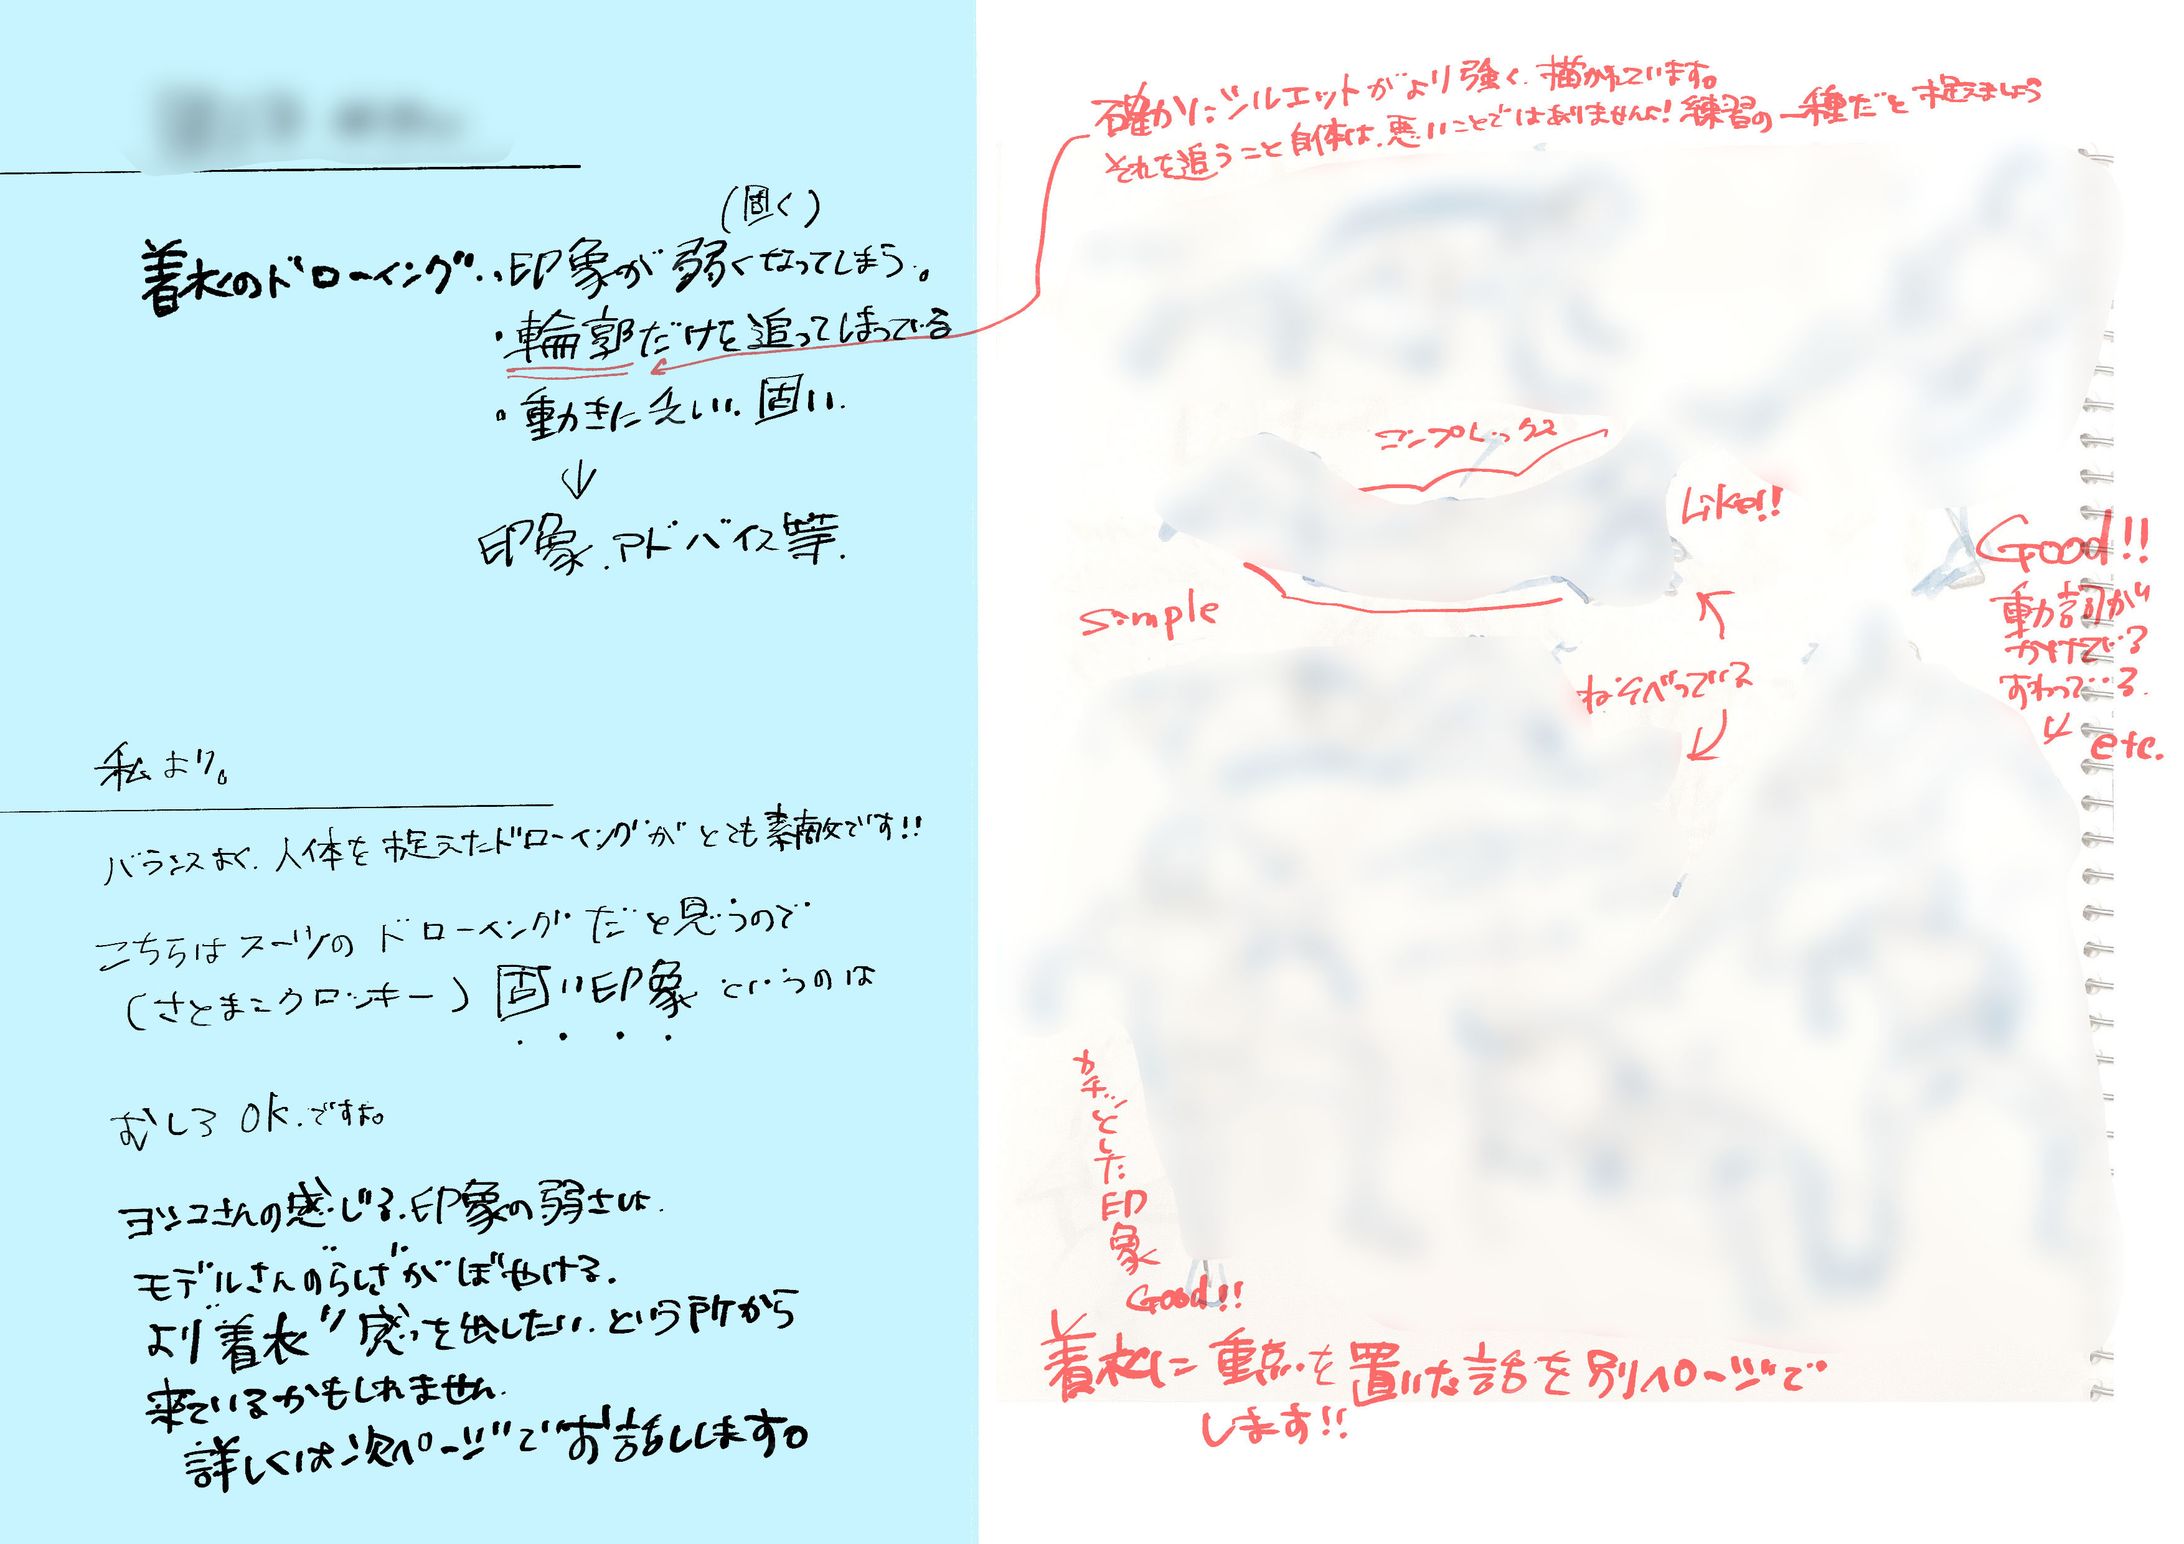 (固く)
着衣のドローイング..印象が弱くなってしまう。
・輪郭だけを追ってしまっている
・動きに乏しい.固い.
↓
印象.アドバイス等.
私より。
バランスよく.人体を捉えたドローイングがとても素敵です!!
こちらはスーツのドローイングだと思うので
(さとまこクロッキー)固い印象というのは
むしろOK.ですよ。
ヨシコさんの感じる.印象の弱さは.
モデルさんの"らしさ"がぼやける.
より"着衣"感っを出したい.という所から
来ているかもしれません.
詳しくは次ページでお話しします。
確かにシルエットがより強く.描かれています。
それを追うこと自体は.悪いことではありませんよ!練習の一種だと捉えましょう
コンプレックス
Like!!
simple
Good!!
動詞が
かけている
すわっている.
etc.
ねそべっている
カチッとした印象
Good!!
着衣に重点を置いた話を別ページで
します!!